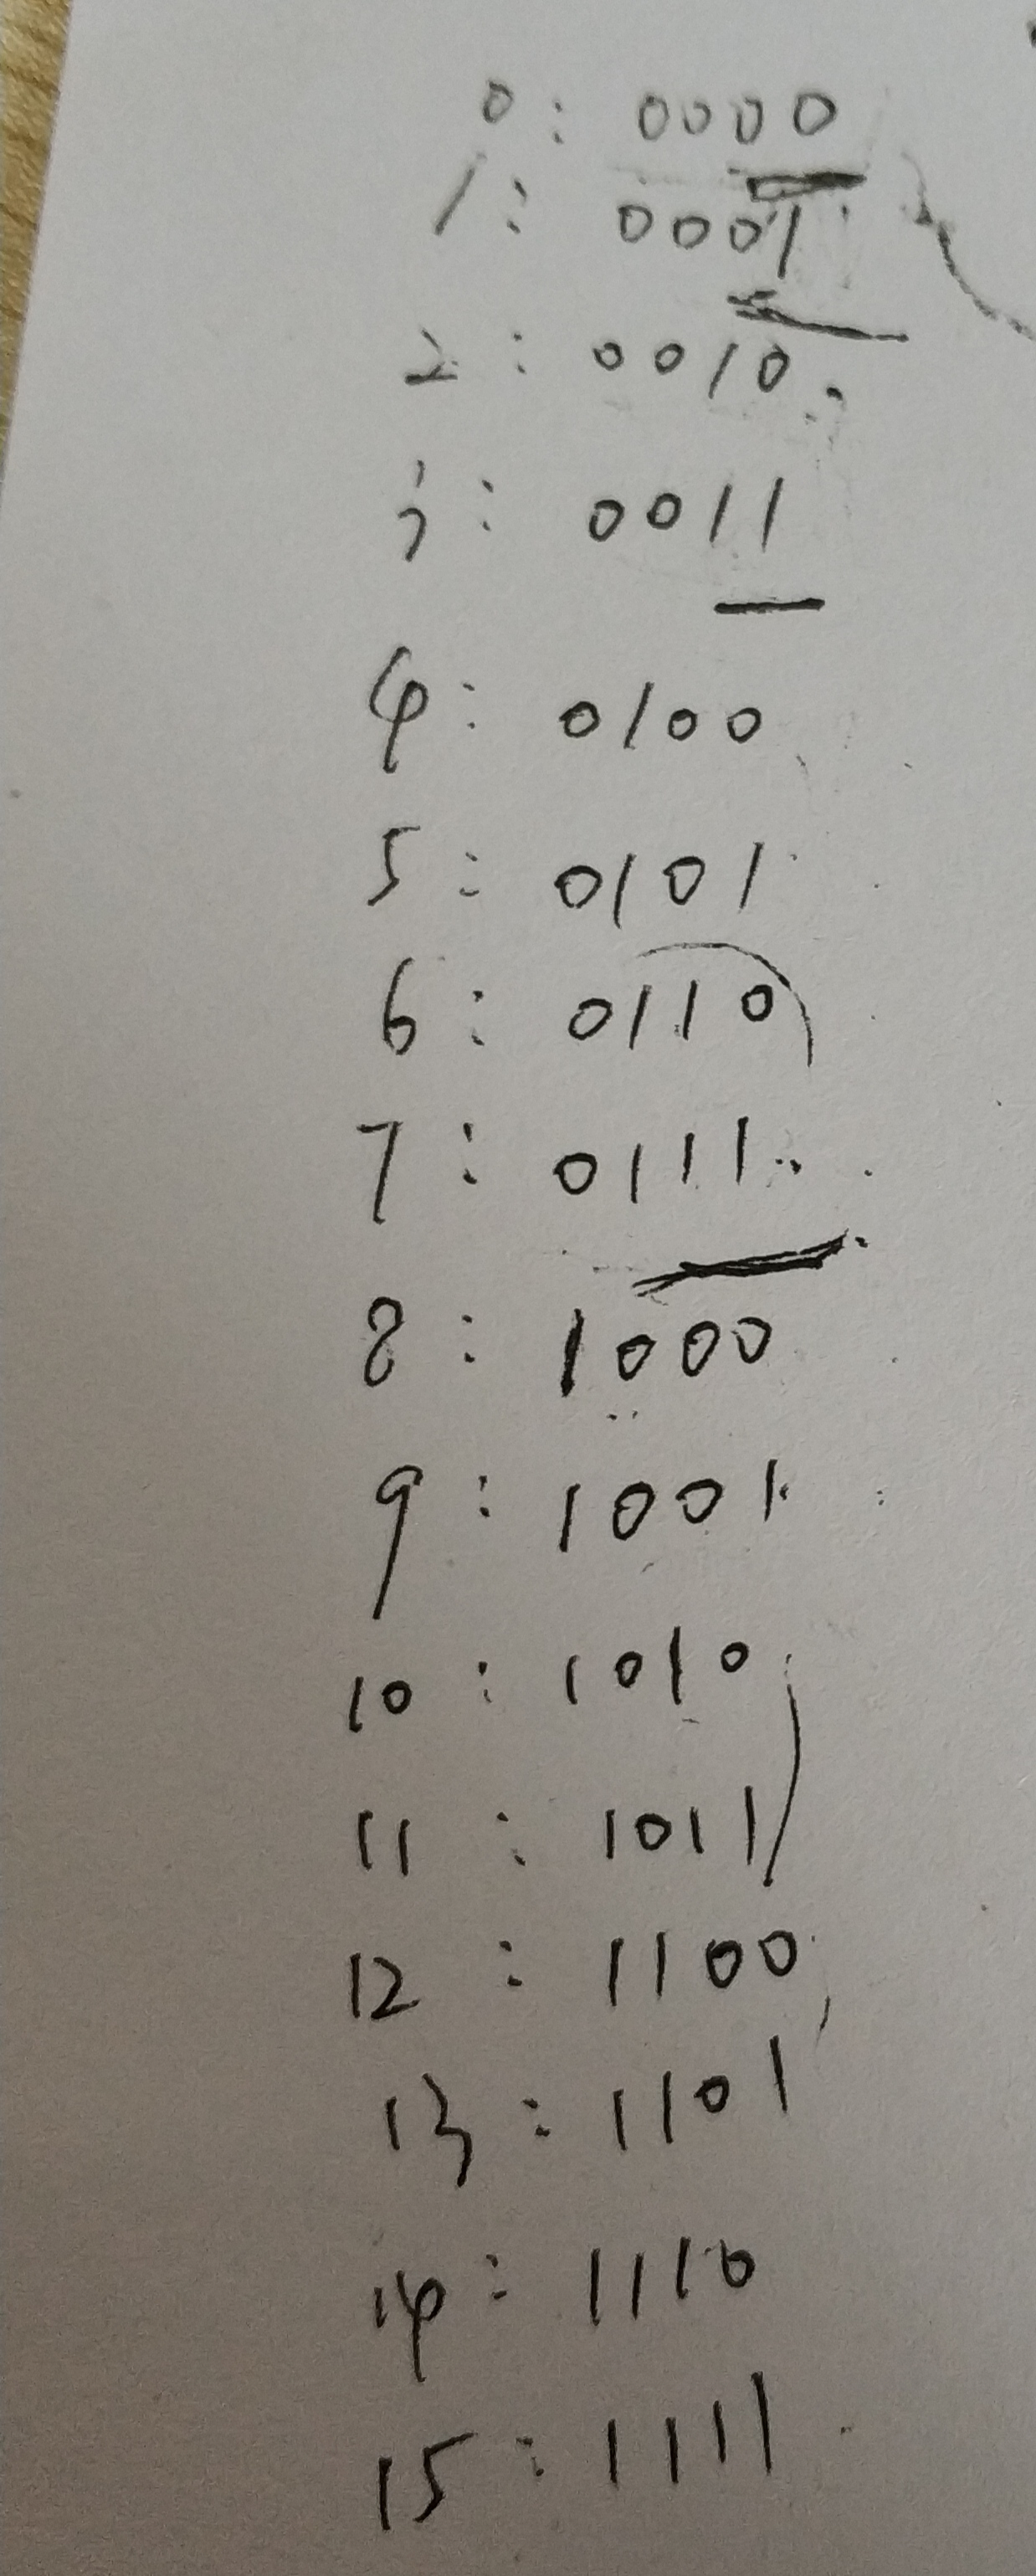 0: 0000
1: 0001
2: 0010
3: 0011
4: 0100
5: 0101
6: 0110
7: 0111
8: 1000
9: 1001
10: 1010
11: 1011
12: 1100
13: 1101
14: 1110
15: 1111